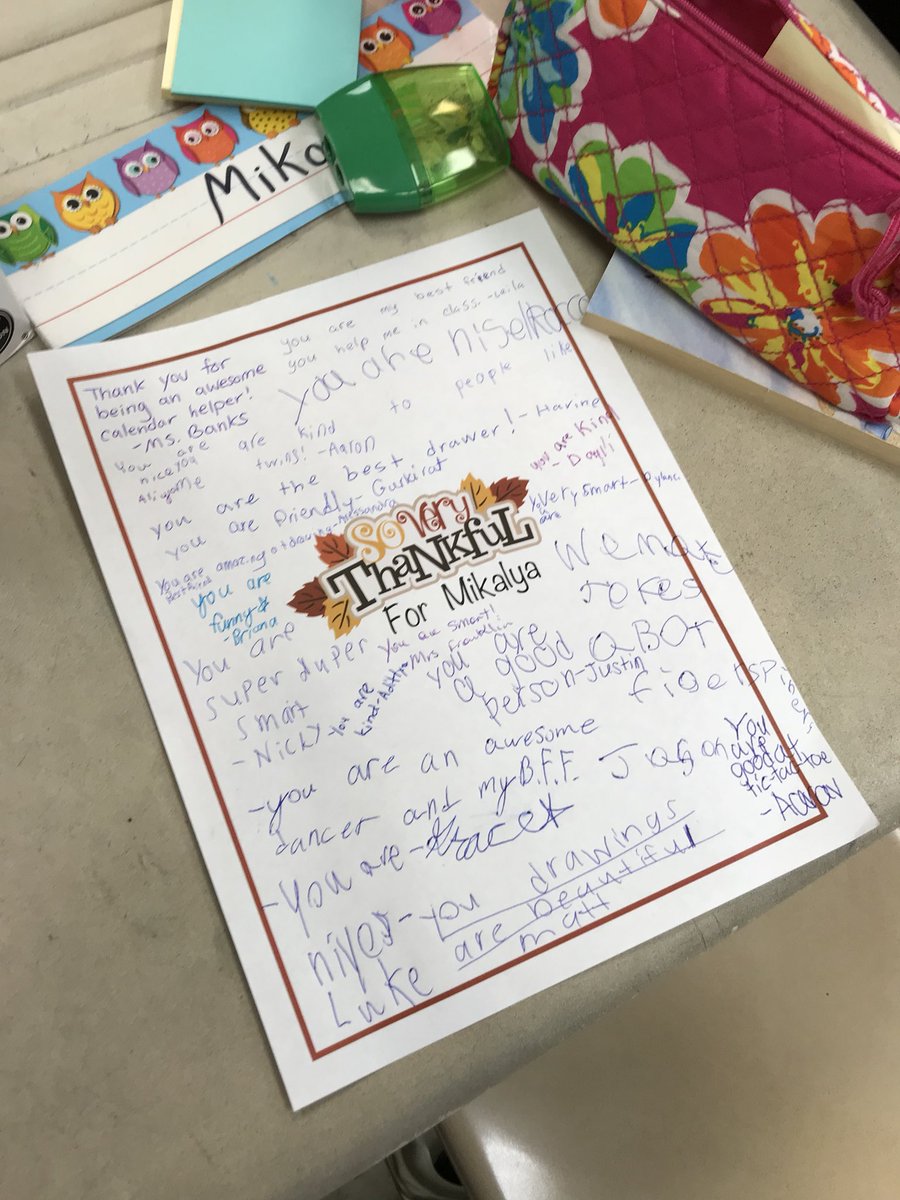 Mika
you are my best friend
you help me in class. -Leila
Thank you for
being an awesome
calendar helper!
-Ms. Banks
you are nise
You are kind to people like
me
turing! -Aaron
You are
nice
you are the best drawer! -
you are Kind
- Dayli
you are friendly - Gurkirat
You are amazing at drawing -
Best friend
You are
very smart -
you are
funny
-Briana
So Very
Thankful
For Mikalya
We mak
Jokes
You are
super duper
smart
- Nicky
You are smart!
Mrs Franklin
You are
kind -
you are
a good
person - Justin
-you are an awesome
dancer and my B.F.F.
Grace
You
are
good at
tic tac toe
- Aaron
-You are
niyes -
Luke
you drawings
are beautiful
matt